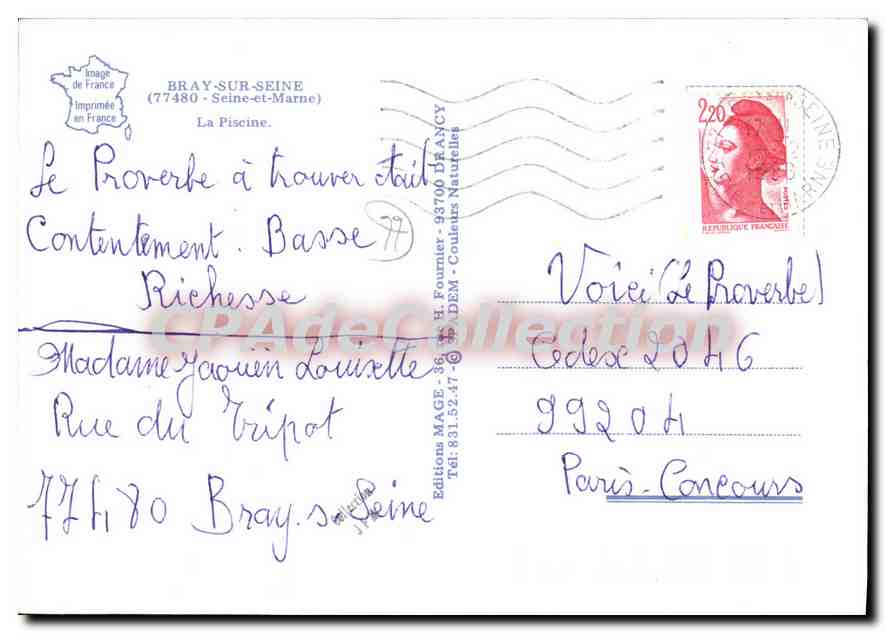 Image
de France
Imprimée
en France
BRAY-SUR-SEINE
(77480 - Seine-et-Marne)
La Piscine.
Le Proverbe à trouver était
Contentement. Basse
77
Richesse
Madame Jaouën Louisette
Rue du Tripot
77480 Bray. s. Seine
Collection
Editions MAGE - 36, H. Fournier - 93700 DRANCY
Tél: 831.52.47 - © SPADEM - Couleurs Naturelles
2,20
REPUBLIQUE FRANÇAISE
Voici (Le Proverbe)
Cedex 2046
99204
Paris-Concours
CPAdeCollection